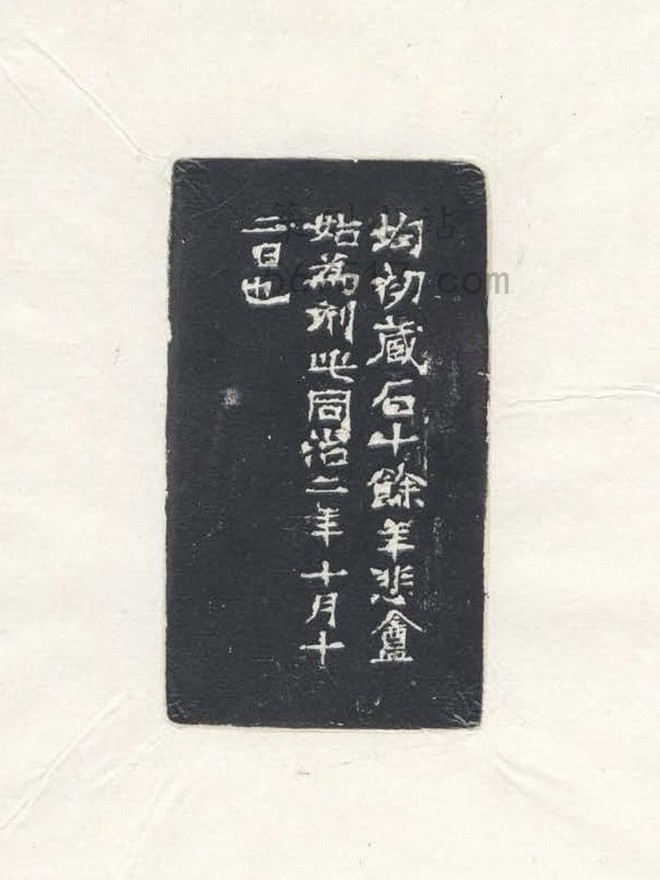 均初藏石十餘年悲盦
始為刻此同治二年十月十
二日也
站
com